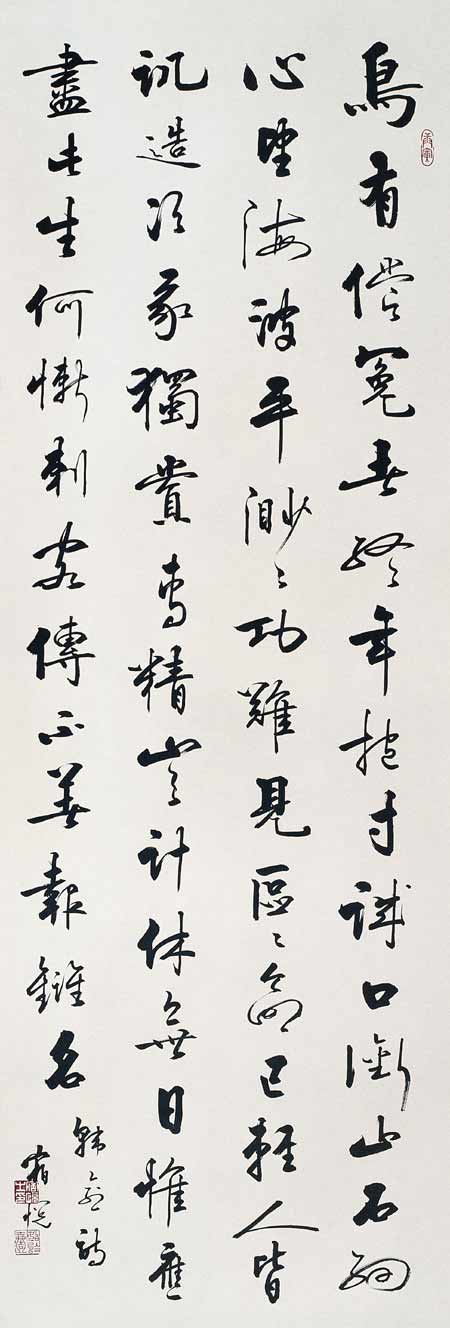 鳥有償冤者終年抱寸誠口銜山石細
心望海波平渺々功難見區々命已輕人皆
譏造次我獨賞專精豈計休無日惟應
盡此生何慚刺客傳不著報讎名
韓愈詩